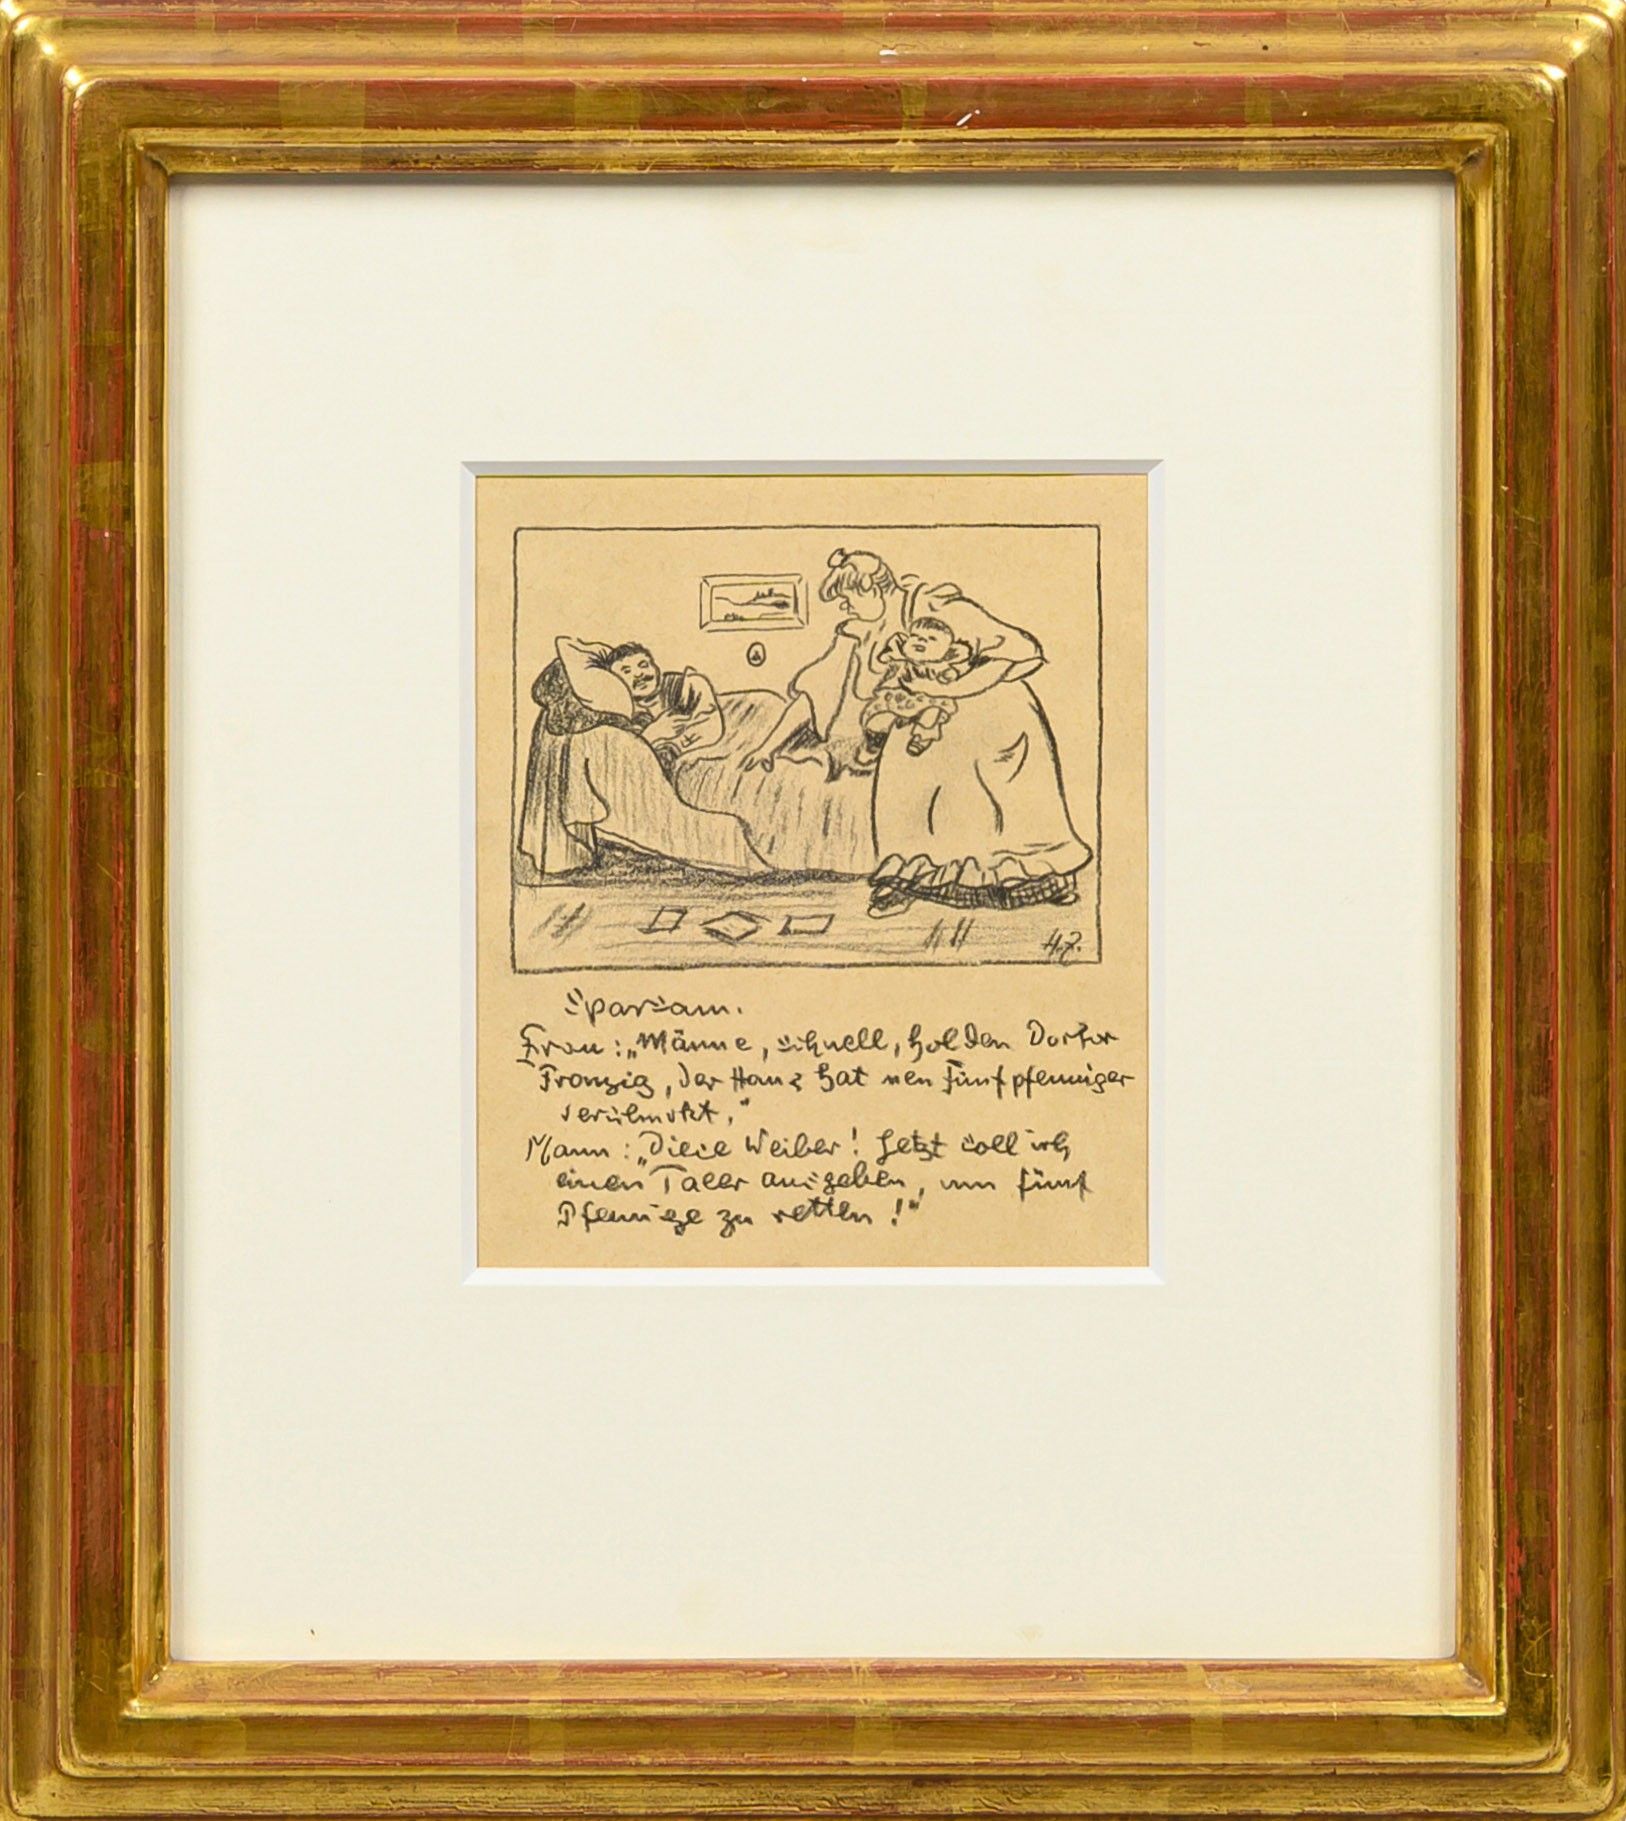 H.Z.
Sparsam.
Frau: „Männe, schnell, hol den Doktor
Franzig, der Hans hat nen Fünfpfenniger
verschluckt.“
Mann: „Diese Weiber! Jetzt soll ich
einen Taler ausgeben, um fünf
Pfennige zu retten!“